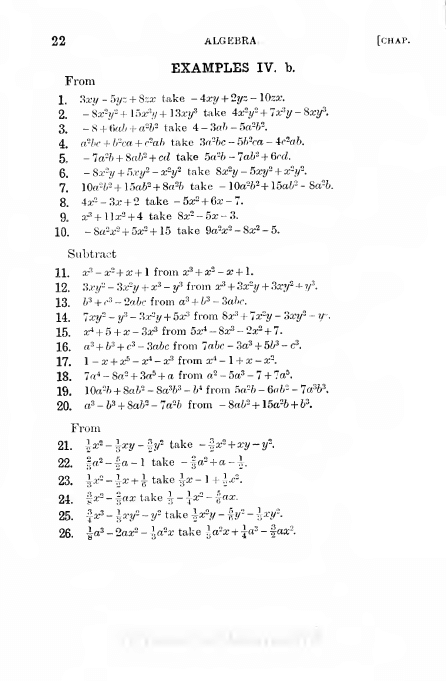 22 ALGEBRA. [CHAP.
EXAMPLES IV. b.
From
1. 3xy - 5yz + 8zx take - 4xy + 2yz - 10zx.
2. - 8x²y² + 15x³y + 13xy³ take 4x²y² + 7x³y - 8xy³.
3. - 8 + 6ab + a²b² take 4 - 3ab - 5a²b².
4. a²bc + b²ca + c²ab take 3a²bc - 5b²ca - 4c²ab.
5. - 7a²b + 8ab² + cd take 5a²b - 7ab² + 6cd.
6. - 8x²y + 5xy² - x²y² take 8x²y - 5xy² + x²y².
7. 10a²b² + 15ab² + 8a²b take - 10a²b² + 15ab² - 8a²b.
8. 4x² - 3x + 2 take - 5x² + 6x - 7.
9. x³ + 11x² + 4 take 8x² - 5x - 3.
10. - 8a²x² + 5x² + 15 take 9a²x² - 8x² - 5.
Subtract
11. x³ - x² + x + 1 from x³ + x² - x + 1.
12. 3xy² - 3x²y + x³ - y³ from x³ + 3x²y + 3xy² + y³.
13. b³ + c³ - 2abc from a³ + b³ - 3abc.
14. 7xy² - y³ - 3x²y + 5x³ from 8x³ + 7x²y - 3xy² - y³.
15. x⁴ + 5 + x - 3x³ from 5x⁴ - 8x³ - 2x² + 7.
16. a³ + b³ + c³ - 3abc from 7abc - 3a³ + 5b³ - c³.
17. 1 - x + x⁵ - x⁴ - x³ from x⁴ - 1 + x - x².
18. 7a⁴ - 8a² + 3a⁵ + a from a² - 5a³ - 7 + 7a⁵.
19. 10a²b + 8ab² - 8a³b³ - b⁴ from 5a²b - 6ab² - 7a³b³.
20. a³ - b³ + 8ab² - 7a²b from - 8ab² + 15a²b + b³.
From
21. ½x² - ⅓xy - 3/2y² take - 3/2x² + xy - y².
22. ⅔a² - 5/2a - 1 take - ⅔a² + a - ½.
23. ⅓x² - ½x + ⅙ take ⅓x - 1 + ½x².
24. ⅜x² - ⅔ax take ⅓ - ¼x² - ⅚ax.
25. ¾x³ - ⅓xy² - y² take ½x²y - ⅚y² - ⅓xy².
26. ⅛a³ - 2ax² - ⅓a²x take ⅓a²x + ¼a³ - 3/2ax².